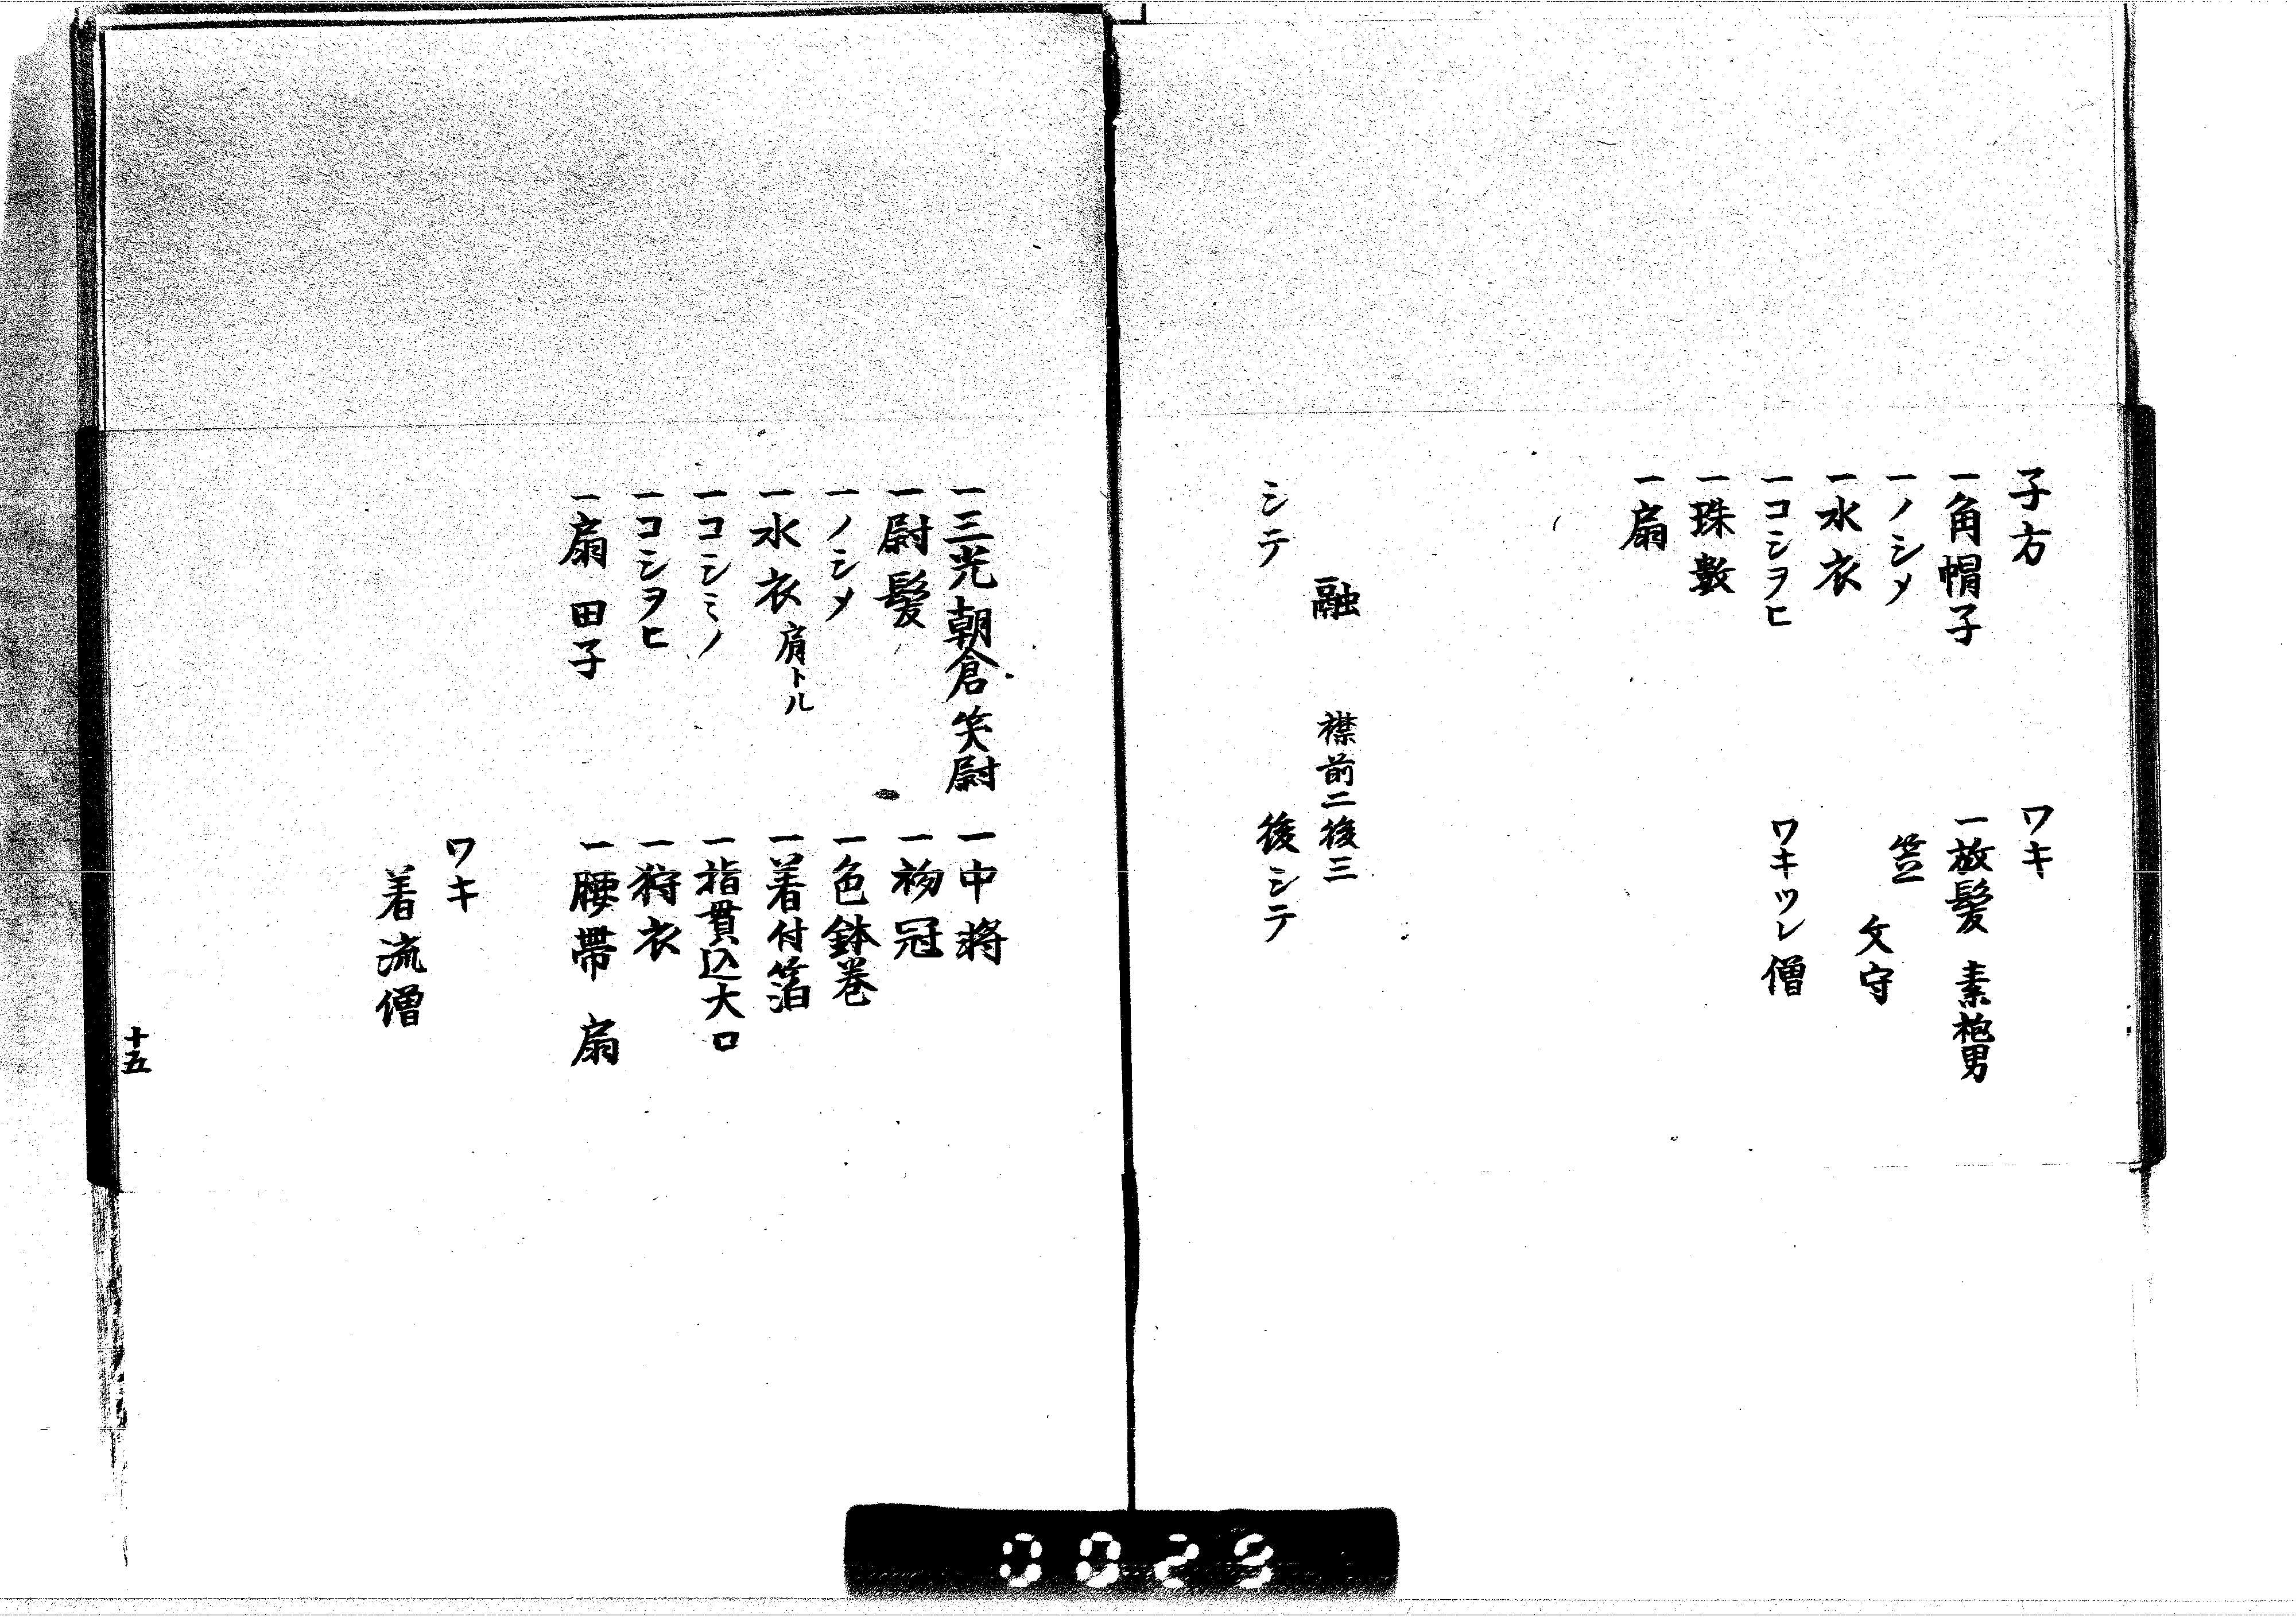 子方
一角帽子
一ノシメ
一水衣
一コシヲヒ
一珠数
一扇
ワキ
一放髪 素袍男
笠
文守
ワキツレ僧
融 襟前二後三
シテ 後シテ
一三光朝倉笑尉
一尉髪
一ノシメ
一水衣 肩トル
一コシミノ
一コシヲヒ
一扇 田子
一中将
一初冠
一色鉢巻
一着付箔
一指貫込大口
一狩衣
一腰帯 扇
ワキ
着流僧
十五